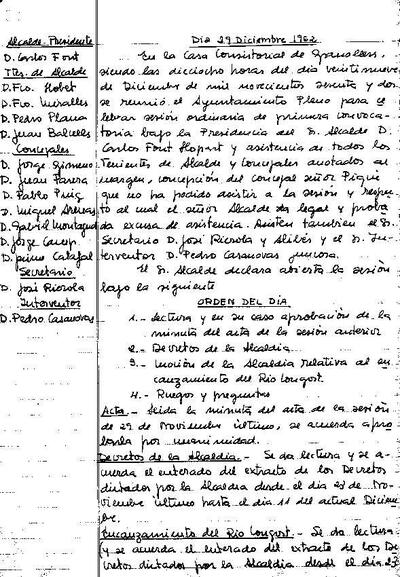 Alcalde-Presidente
D. Carlos Font
Ttes. de Alcalde
D. Fco. Llobet
D. Fco. Miralles
D. Pedro Plana
D. Juan Balcells
Concejales
D. Jorge Gimeno
D. Juan Parera
D. Pablo Puig
D. Miquel Arenas
D. Gabriel Montagud
D. Jorge Camp
D. Jaime Catafal
Secretario
D. José Rierola
Interventor
D. Pedro Casanovas
Día 29 Diciembre 1962
En la Casa Consistorial de Granollers,
siendo las dieciocho horas del día veintinueve
de Diciembre de mil novecientos sesenta y dos
se reunió el Ayuntamiento Pleno para ce
lebrar sesión ordinaria de primera convoca-
toria bajo la Presidencia del Sr. Alcalde D.
Carlos Font Llopart y asistencia de todos los
Tenientes de Alcalde y Concejales anotados al
margen, concepción del concejal señor Piqué
que no ha podido asistir a la sesión y respec
to al cual el señor Alcalde da legal y proba
da excusa de asistencia. Asisten también el Sr.
Secretario D. José Rierola y Alibés y el Sr. In-
terventor D. Pedro Casanovas
El Sr. Alcalde declara abierta la sesión
bajo la siguiente
ORDEN DEL DIA
1.- Lectura y en su caso aprobación de la
minuta del acta de la sesión anterior
2.- Decretos de la Alcaldia
3.- Moción de la Alcaldia relativa al en
cauzamiento del Rio Congost.
4.- Ruegos y preguntas
Acta.- Leida la minuta del acta de la sesión
de 29 de Noviembre último, se acuerda apro
barla por unanimidad.
Decretos de la Alcaldia.- Se da lectura y se a-
cuerda el enterado del extracto de los Decretos
dictados por la Alcaldia desde el dia 23 de No-
viembre último hasta el dia 11 del actual Diciem
bre.
Encauzamiento del Rio Congost.- Se da lectura
y se acuerda el enterado del extracto de los De
cretos dictados por la Alcaldia desde el dia 23